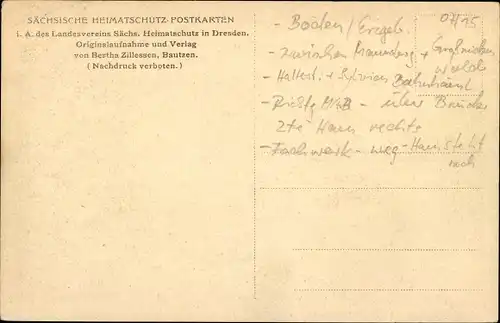 SÄCHSISCHE HEIMATSCHUTZ-POSTKARTEN
i. A. des Landesvereins Sächs. Heimatschutz in Dresden.
Originalaufnahme und Verlag
von Bertha Zillessen, Bautzen.
(Nachdruck verboten.)
07/15
- Boden/Erzgeb.
- zwischen +
- + Bahnhaus
- - über Brücke
2te Haus rechts
- Fachwerk - weg - Haus steht
noch